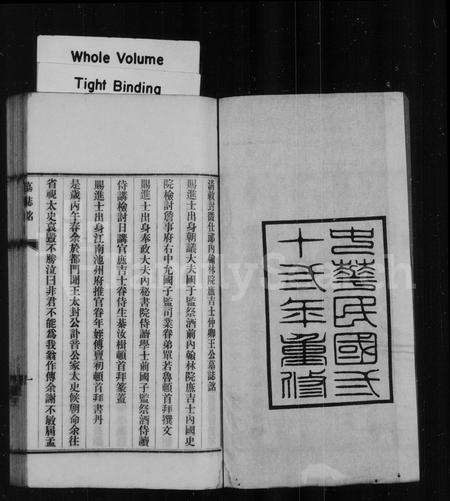 Whole Volume
Tight Binding
中華民國二
十弍年重修
清敕封徵仕郎內翰林院庶吉士仲卿王公墓誌銘
賜進士出身朝議大夫國子監祭酒前內翰林院庶吉士內國史
院檢討詹事府右中允國子監司業眷弟單若魯頓首拜撰文
賜進士出身奉政大夫內秘書院侍讀學士前國子監祭酒侍讀
侍講檢討日講官庶吉士眷侍生綦汝楫頓首拜篆蓋
賜進士出身江南池州府推官眷年姪傅賚初頓首拜書丹
是歲丙午春余於都門聞王太封公訃音公家太史候朝命余往
省視太史哀毀不勝泣曰非君不能為我翁作傳余謝不敏屆孟
墓誌銘
一